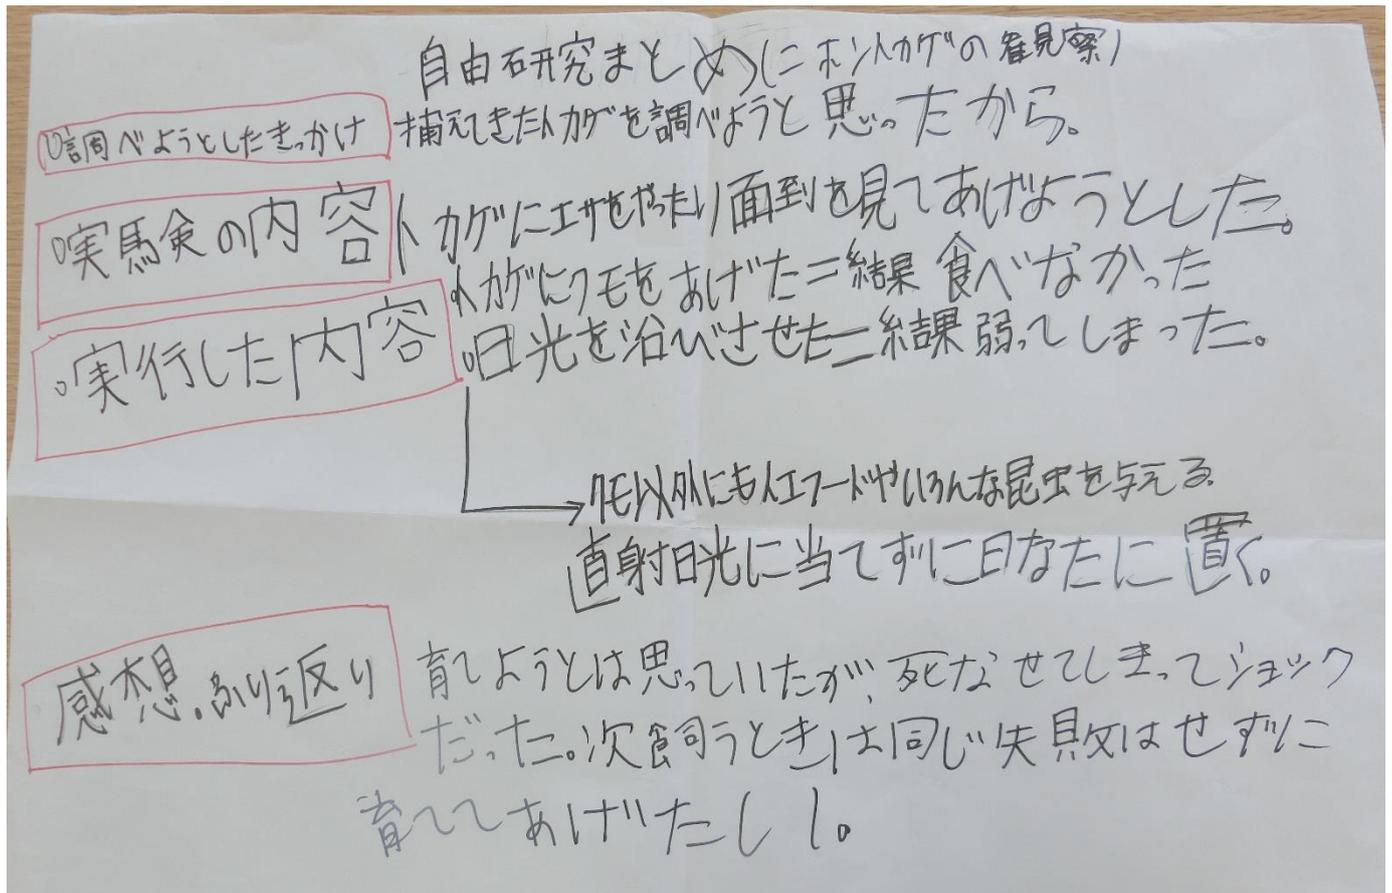 自由研究まとめ(ニホントカゲの観察)
○調べようとしたきっかけ 捕えてきたトカゲを調べようと思ったから。
○実験の内容 トカゲにエサをやったり面到を見てあげようとした。
トカゲにクモをあげた=結果 食べなかった
○実行した内容 ○日光を浴びさせた=結果 弱ってしまった。
→クモ以外にも人工フードやいろんな昆虫を与える。
直射日光に当てずに日なたに置く。
感想。ふり返り 育てようとは思っていたが、死なせてしまってショック
だった。次飼うときは同じ失敗はせずに
育ててあげたしい。